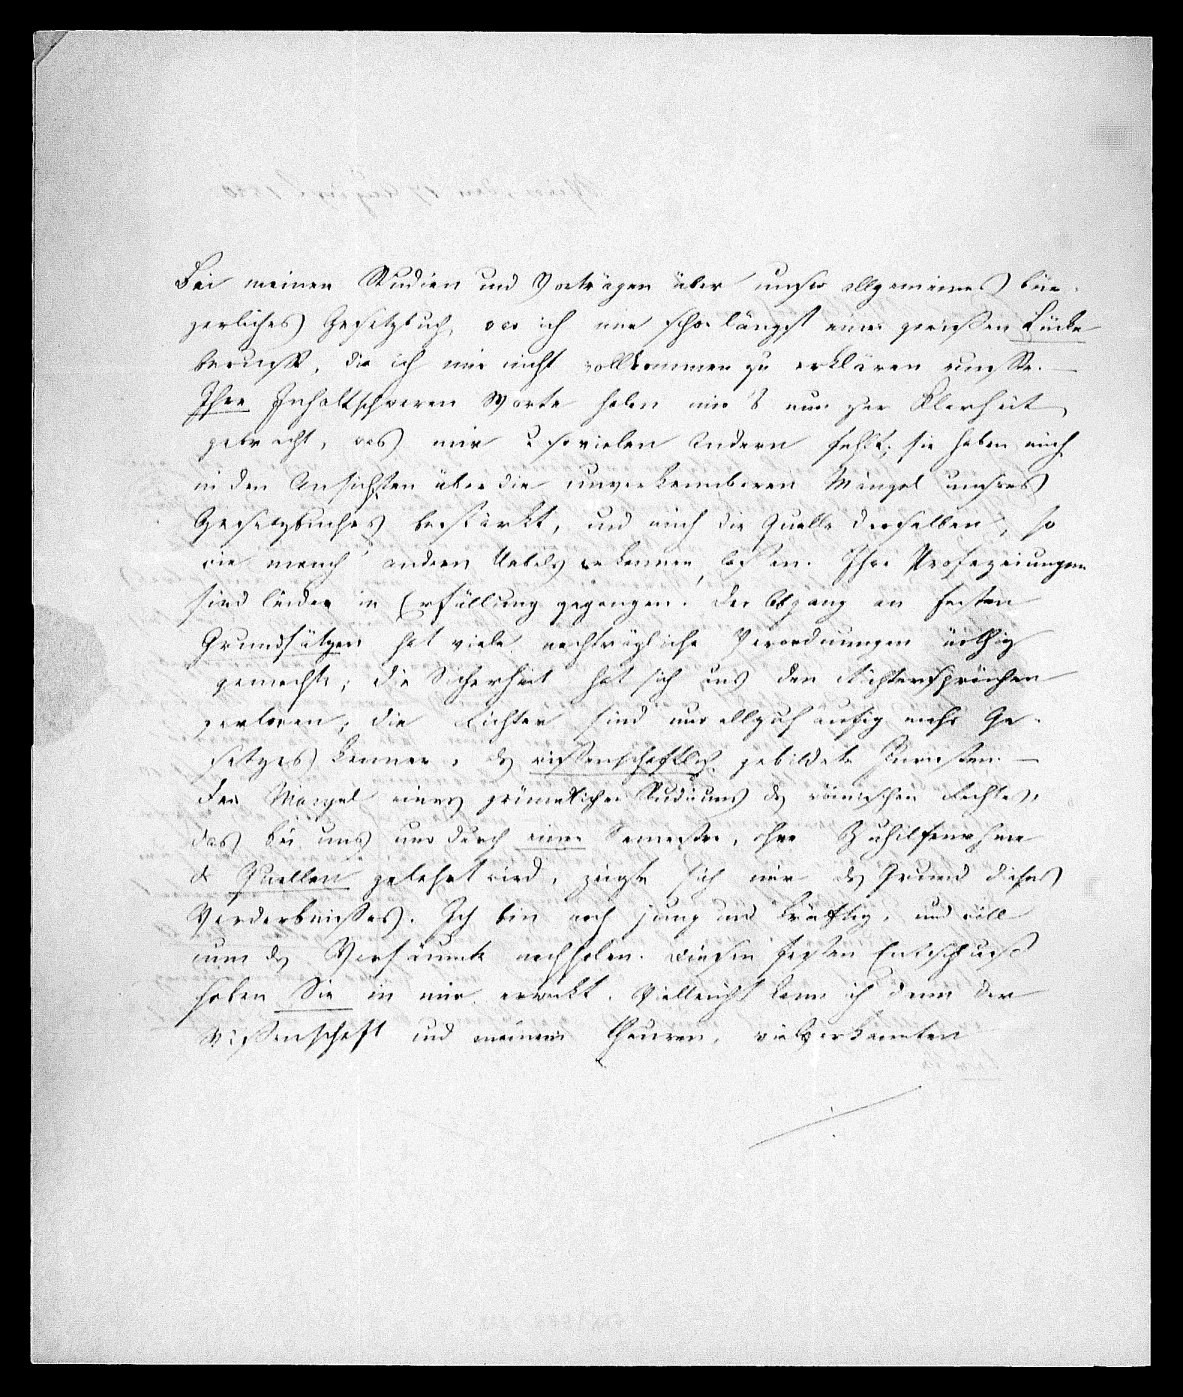 Bei meinen Studien und Vorträgen über unser allgemeines bür-
gerliches Gesetzbuch, war ich mir schon längst einer gewissen Lücke
bewusst, die ich mir nicht vollkommen zu erklären wusste. —
Ihre Inhaltschweren Worte haben mir's nun zur Klarheit
gebracht, was mir u sovielen Andern fehlt; sie haben mich
in den Ansichten über die unverkennbaren Mängel unsres
Gesetzbuches bestärkt, und mich die Quelle derselben, so
wie manch' andern Uebels erkennen lassen. Ihre Profezeiungen
sind leider in Erfüllung gegangen. Der Abgang an festen
Grundsätzen hat viele nachträgliche Verordnungen nöthig
gemacht; die Sicherheit hat sich aus den Richtersprüchen
verloren; die Richter sind nur allzuhäufig mehr Ge-
setzes Kenner, als wissenschaftlich gebildete Juristen. —
Der Mangel eines gründlichen Studiums des römischen Rechtes,
das bei uns nur durch einen Semester, ohne Zuhilfenahme
der Quellen gelehrt wird, zeigte sich mir als Grund dieses
Verderbnisses. Ich bin noch jung und kräftig, und will
nun das Versäumte nachholen. Diesen festen Entschluss
haben Sie in mir erweckt. Vielleicht kann ich dann der
Wissenschaft und meinem theuren, vielverkannten